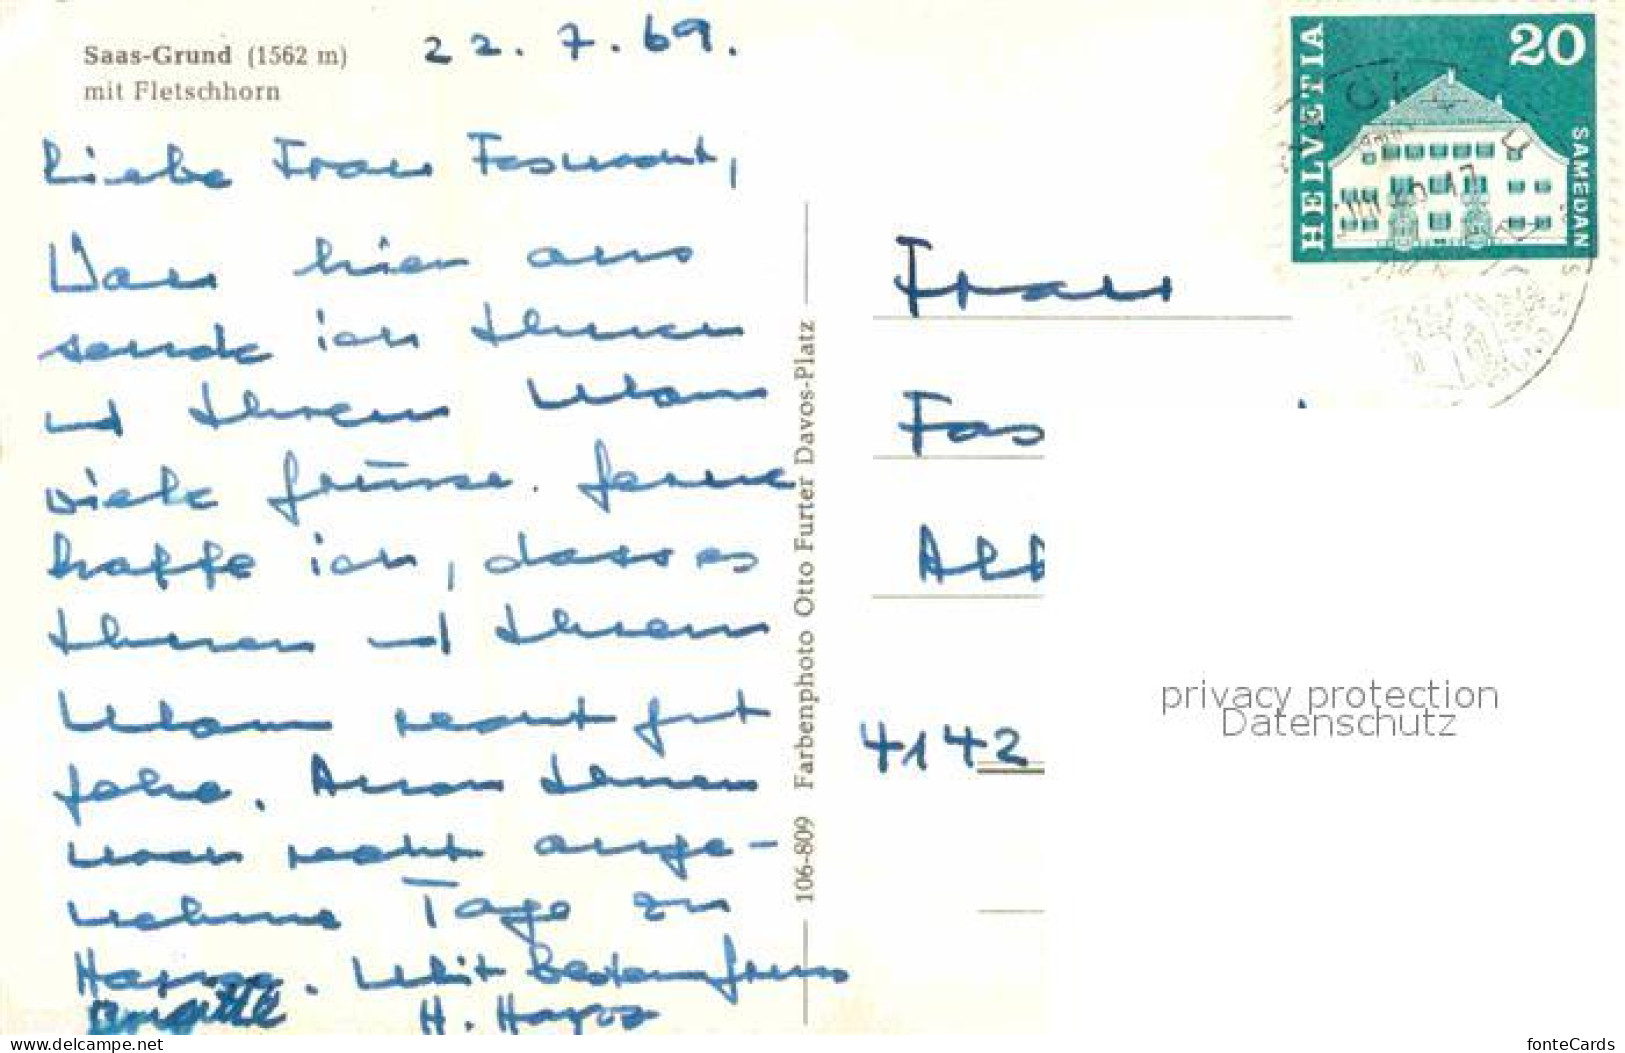 Saas-Grund (1562 m)
mit Fletschhorn
22.7.69.
Liebe Frau
Von hier aus
sende ich Ihnen
und Ihrem Mann
viele Grüsse. Gerne
hoffe ich, dass es
Ihnen und Ihrem
Mann recht gut
gehe. Ihnen
noch recht ange-
nehme Tage zu
Hause. Mit
Brigitte H.
106-809 Farbenphoto Otto Furter Davos-Platz
HELVETIA
20
SAMEDAN
Frau
Fas
4142
privacy protection
Datenschutz
www.delcampe.net
fonteCards